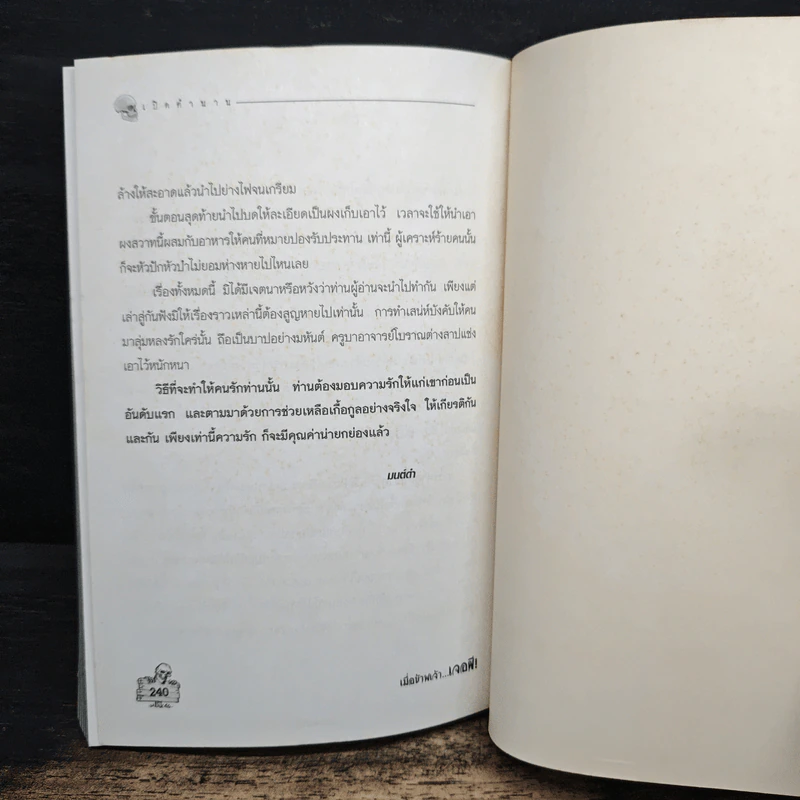 เปิดตำนาน
ล้างให้สะอาดแล้วนำไปย่างไฟจนเกรียม
ขั้นตอนสุดท้ายนำไปบดให้ละเอียดเป็นผงเก็บเอาไว้ เวลาจะใช้ให้นำเอา
ผงสวาทนี้ผสมกับอาหารให้คนที่หมายปองรับประทาน เท่านี้ ผู้เคราะห์ร้ายคนนั้น
ก็จะหัวปักหัวปำไม่ยอมห่างหายไปไหนเลย
เรื่องทั้งหมดนี้ มิได้มีเจตนาหรือหวังว่าท่านผู้อ่านจะนำไปทำกัน เพียงแต่
เล่าสู่กันฟังมิให้เรื่องราวเหล่านี้ต้องสูญหายไปเท่านั้น การทำเสน่ห์บังคับให้คน
มาลุ่มหลงรักใคร่นั้น ถือเป็นบาปอย่างมหันต์ ครูบาอาจารย์โบราณต่างสาปแช่ง
เอาไว้หนักหนา
วิธีที่จะทำให้คนรักท่านนั้น ท่านต้องมอบความรักให้แก่เขาก่อนเป็น
อันดับแรก และตามมาด้วยการช่วยเหลือเกื้อกูลอย่างจริงใจ ให้เกียรติกัน
และกัน เพียงเท่านี้ความรัก ก็จะมีคุณค่าน่ายกย่องแล้ว
มนต์ดำ
240
เมื่อข้าพเจ้า...เจอผี!